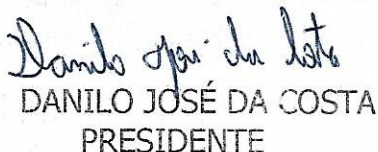 Danilo José da Costa
DANILO JOSÉ DA COSTA
PRESIDENTE